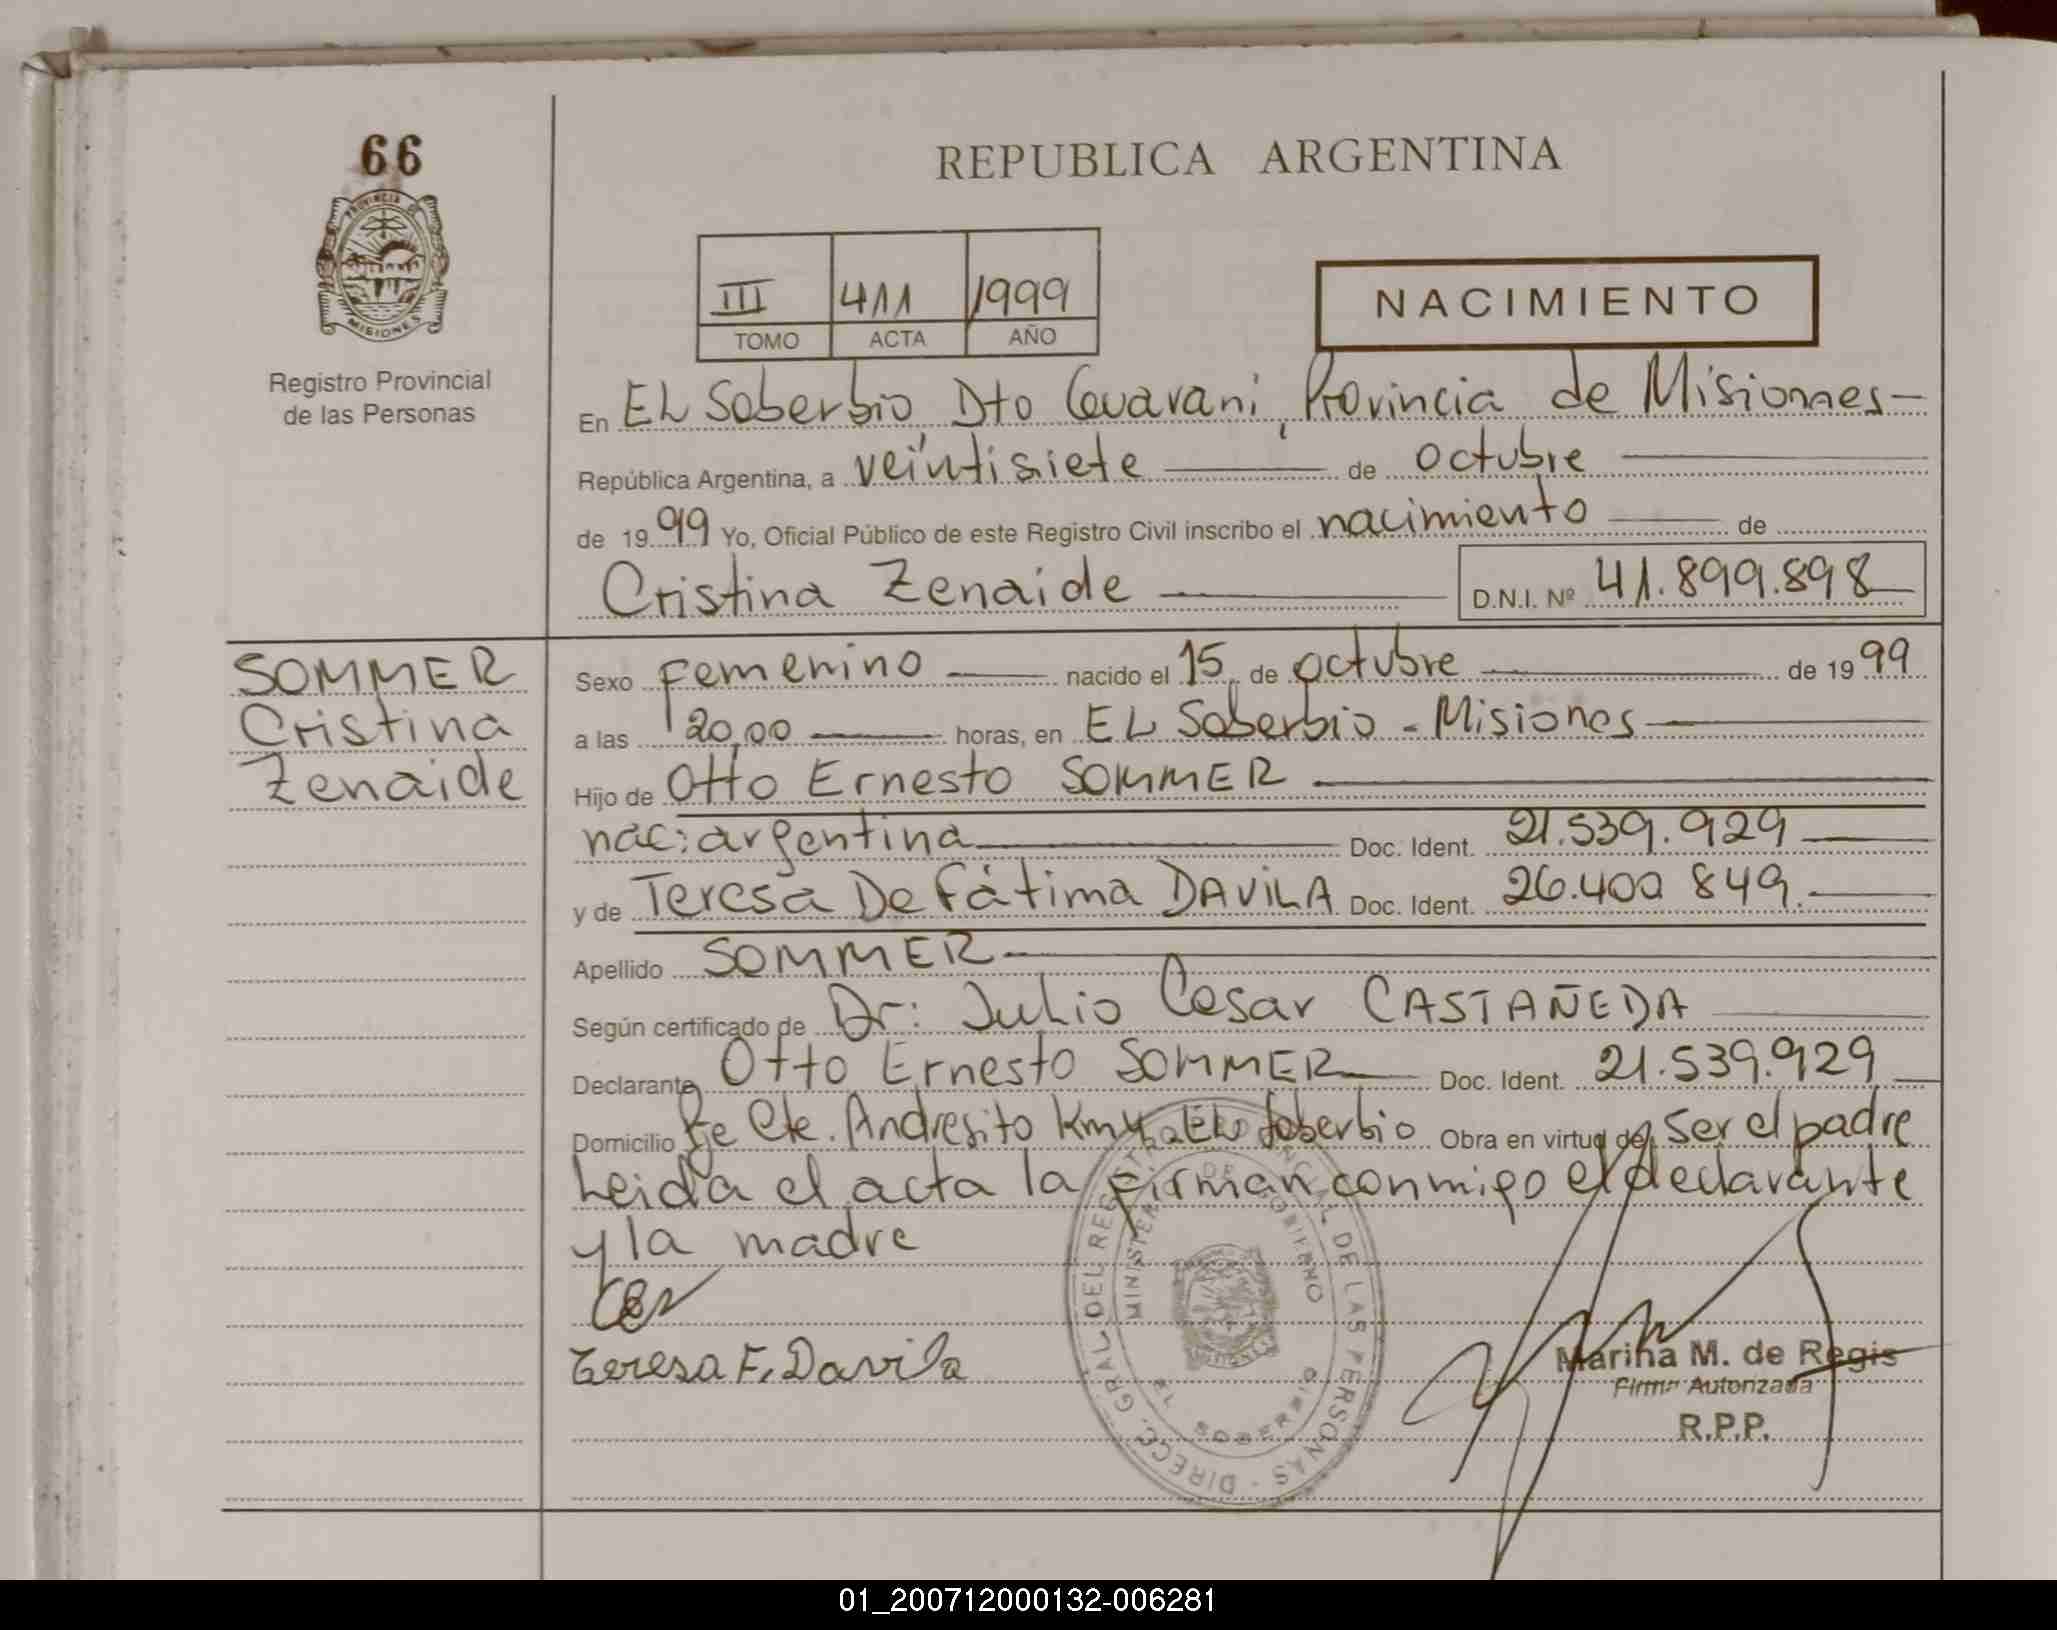 66
PROVINCIA DE
MISIONES
Registro Provincial
de las Personas
REPUBLICA ARGENTINA
III 411 1999
TOMO ACTA AÑO
NACIMIENTO
En EL Soberbio Dto Guarani, Provincia de Misiones-
República Argentina, a veintisiete de octubre
de 1999 Yo, Oficial Público de este Registro Civil inscribo el nacimiento de
Cristina Zenaide D.N.I. Nº 41.899.898
SOMMER
Cristina
Zenaide
Sexo Femenino nacido el 15 de octubre de 1999
a las 20,00 horas, en EL Soberbio - Misiones
Hijo de Otto Ernesto SOMMER
nac: argentina Doc. Ident. 21.539.929
y de Teresa De Fátima DAVILA Doc. Ident. 26.400 849.
Apellido SOMMER
Según certificado de Dr: Julio Cesar CASTAÑEDA
Declarante Otto Ernesto SOMMER Doc. Ident. 21.539.929
Domicilio Cte. Andresito Km4 EL Soberbio Obra en virtud de Ser el padre
Leida el acta la firman conmigo el declarante
y la madre
Teresa F. Davila
DIRECC. GRAL. DEL REGISTRO PROVINCIAL DE LAS PERSONAS -
MINISTERIO DE GOBIERNO
EL SOBERBIO
Marina M. de Regis
Firma Autorizada
R.P.P.
01_200712000132-006281